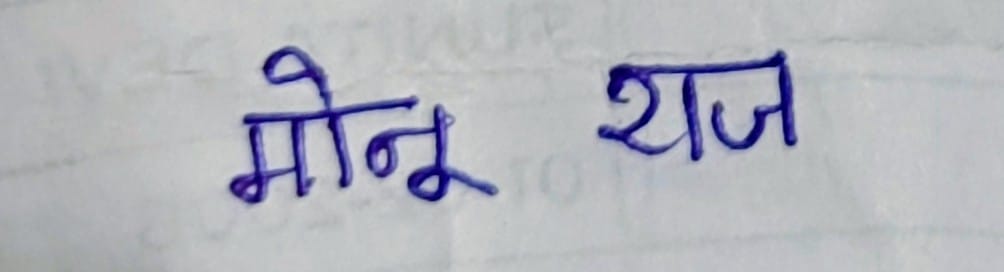 मोनू राज